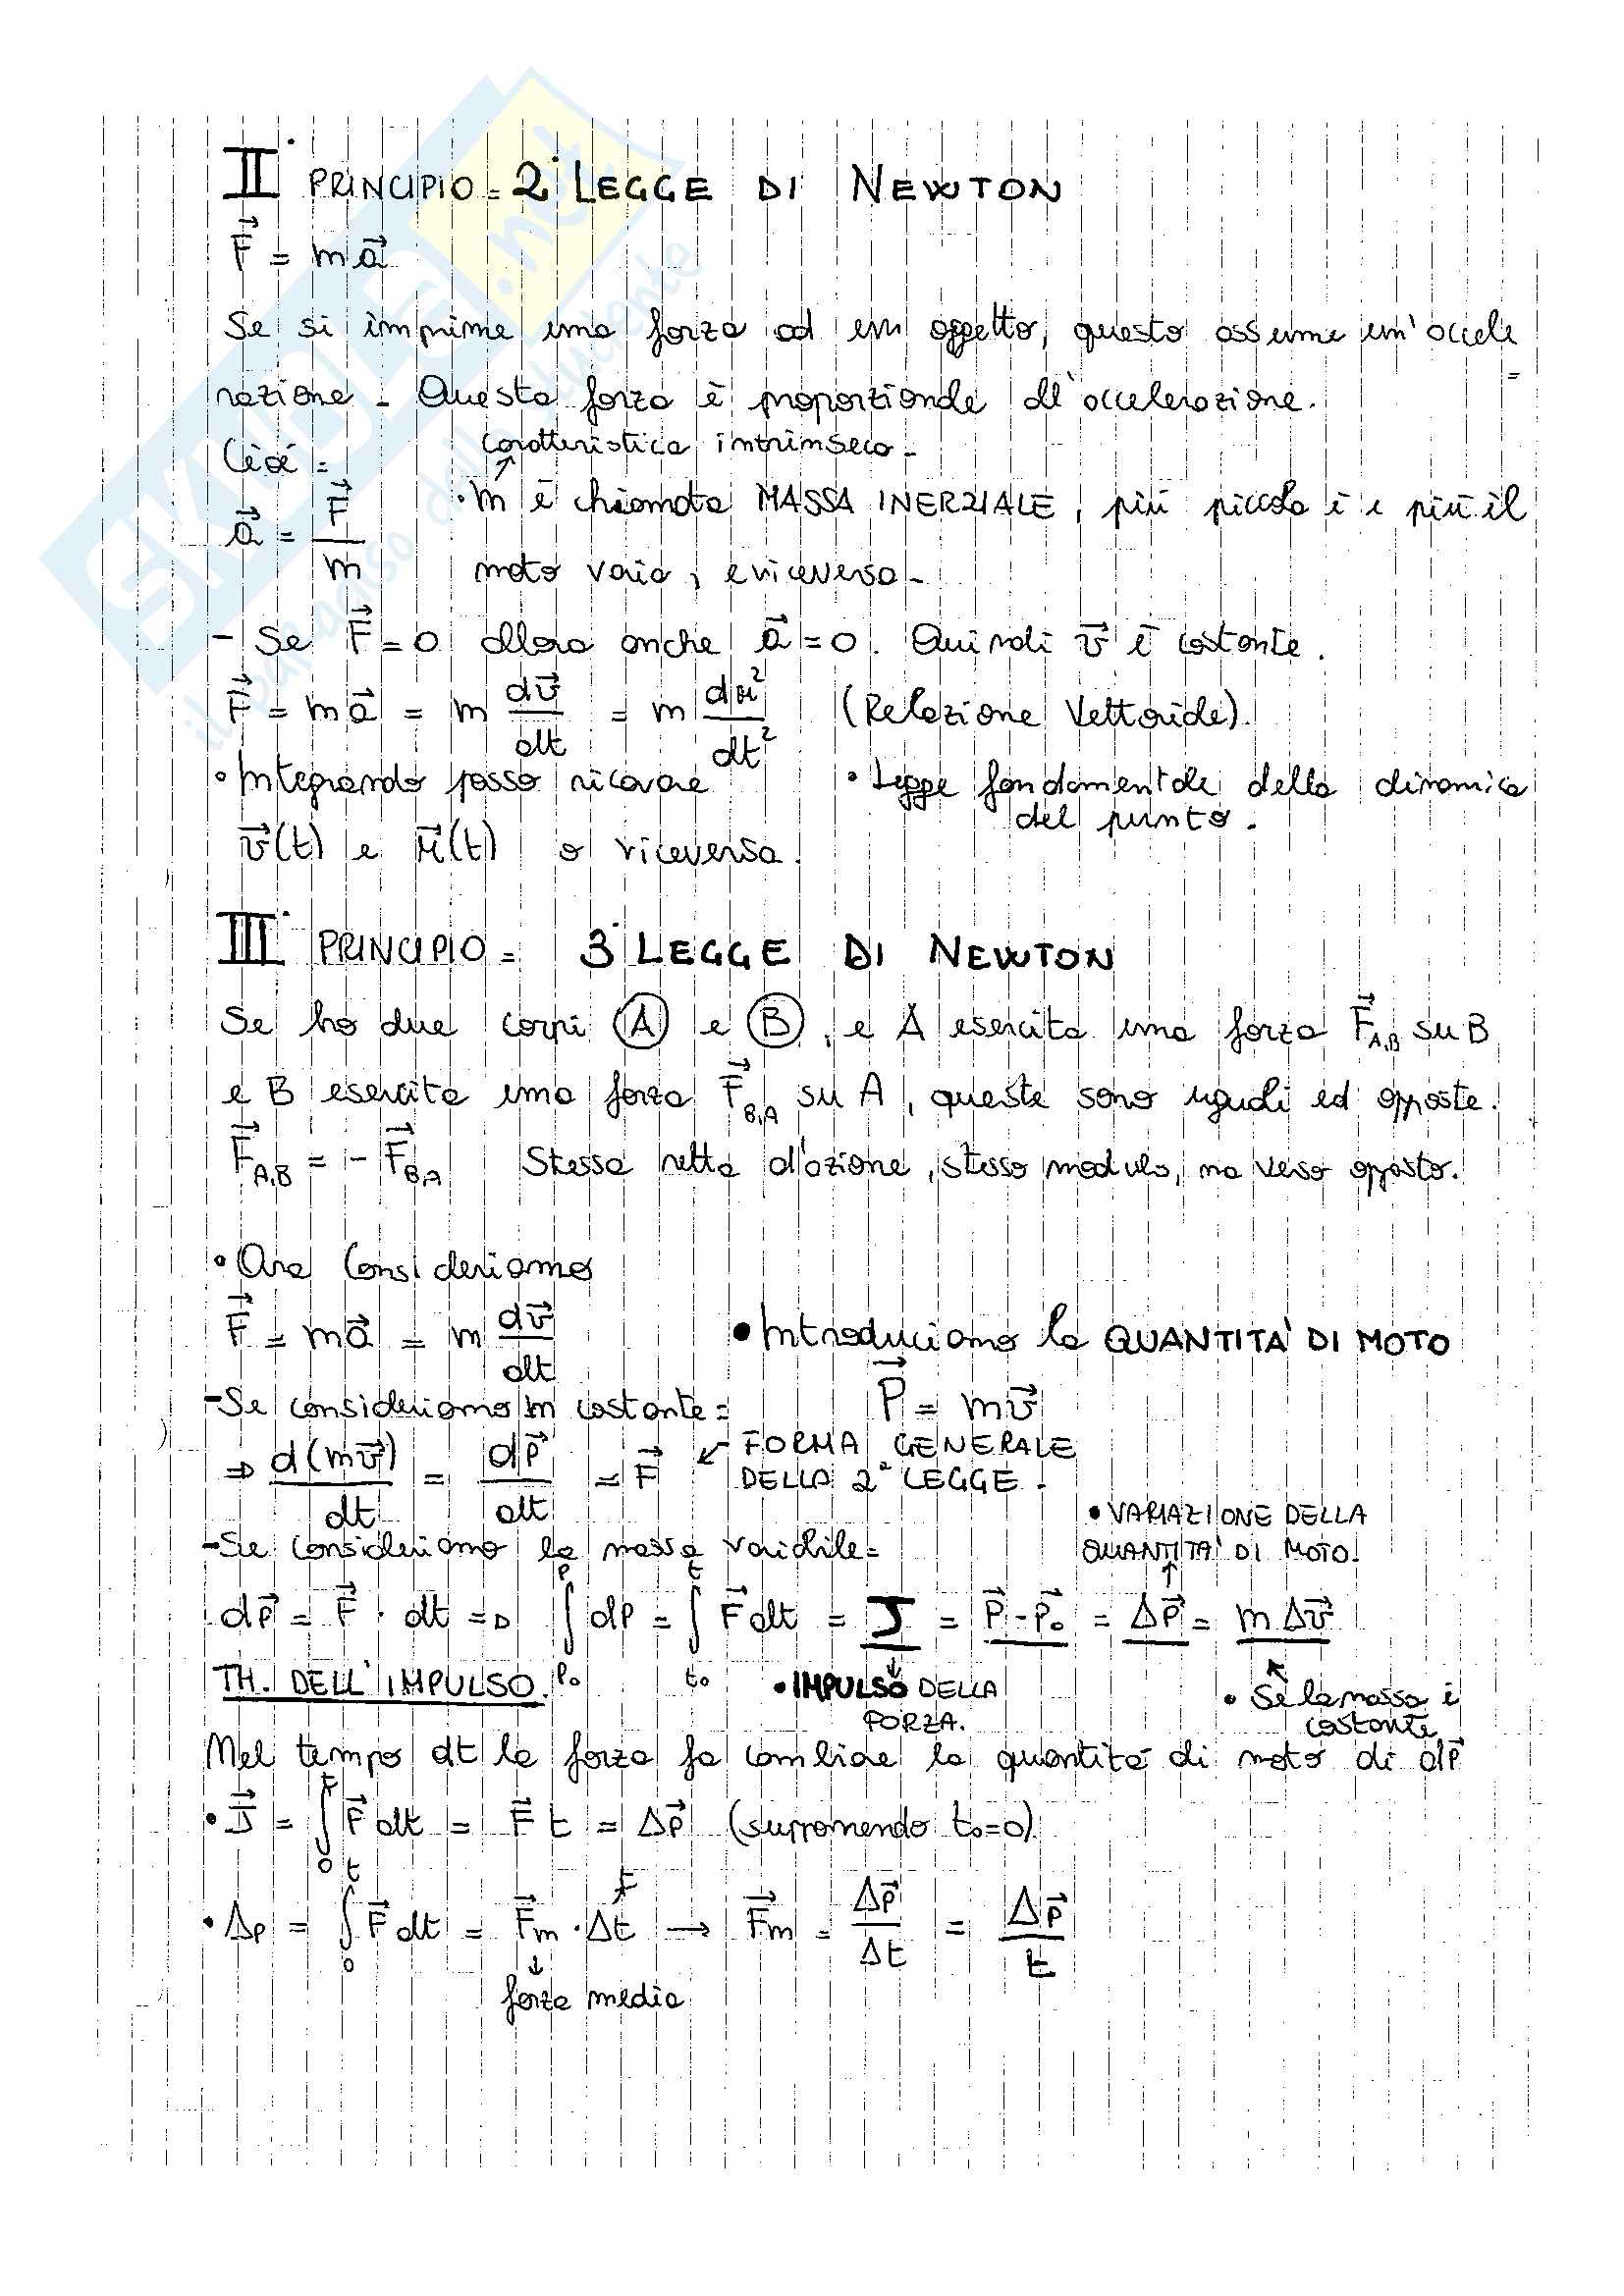 II° PRINCIPIO = 2° LEGGE DI NEWTON
F⃗ = m a⃗
Se si imprime una forza ad un oggetto, questo assume un'accele=
razione. Questa forza è proporzionale all'accelerazione.
Cioè: caratteristica intrinseca.
a⃗ = F⃗/m • m è chiamata MASSA INERZIALE, più piccola è e più il
moto varia, e viceversa.
- Se F⃗ = 0 allora anche a⃗ = 0. Quindi v⃗ è costante.
F⃗ = m a⃗ = m dv⃗/dt = m dr²/dt² (Relazione Vettoriale).
• Integrando posso ricavare • Legge fondamentale della dinamica
del punto.
v⃗(t) e r⃗(t) o viceversa.
III° PRINCIPIO = 3° LEGGE DI NEWTON
Se ho due corpi A e B, e A esercita una forza F⃗A,B su B
e B esercita una forza F⃗B,A su A, queste sono uguali ed opposte.
F⃗A,B = - F⃗B,A Stessa retta d'azione, stesso modulo, ma verso opposto.
• Ora Consideriamo
F⃗ = m a⃗ = m dv⃗/dt • Introduciamo la QUANTITA' DI MOTO
- Se consideriamo m costante = P⃗ = m v⃗
⇒ d(m v⃗)/dt = dP⃗/dt = F⃗ ↙ FORMA GENERALE
DELLA 2° LEGGE.
• VARIAZIONE DELLA
- Se consideriamo la massa variabile = QUANTITA' DI MOTO.
dP⃗ = F⃗ · dt ⇒ ∫ₚ₀ᵖ dP = ∫ₜ₀ᵗ F⃗ dt = J = P⃗ - P⃗₀ = ΔP⃗ = m Δv⃗
TH. DELL'IMPULSO. • IMPULSO DELLA • Se la massa è
FORZA. costante
Nel tempo dt la forza fa cambiare la quantità di moto di dP⃗
• J⃗ = ∫₀ᵗ F⃗ dt = F⃗ t = ΔP⃗ (supponendo t₀=0)
• Δp = ∫₀ᵗ F⃗ dt = F⃗m · Δt → F⃗m = ΔP⃗/Δt = ΔP⃗/t
↓ forza media
SKUOLA.net
il paradiso dello studente